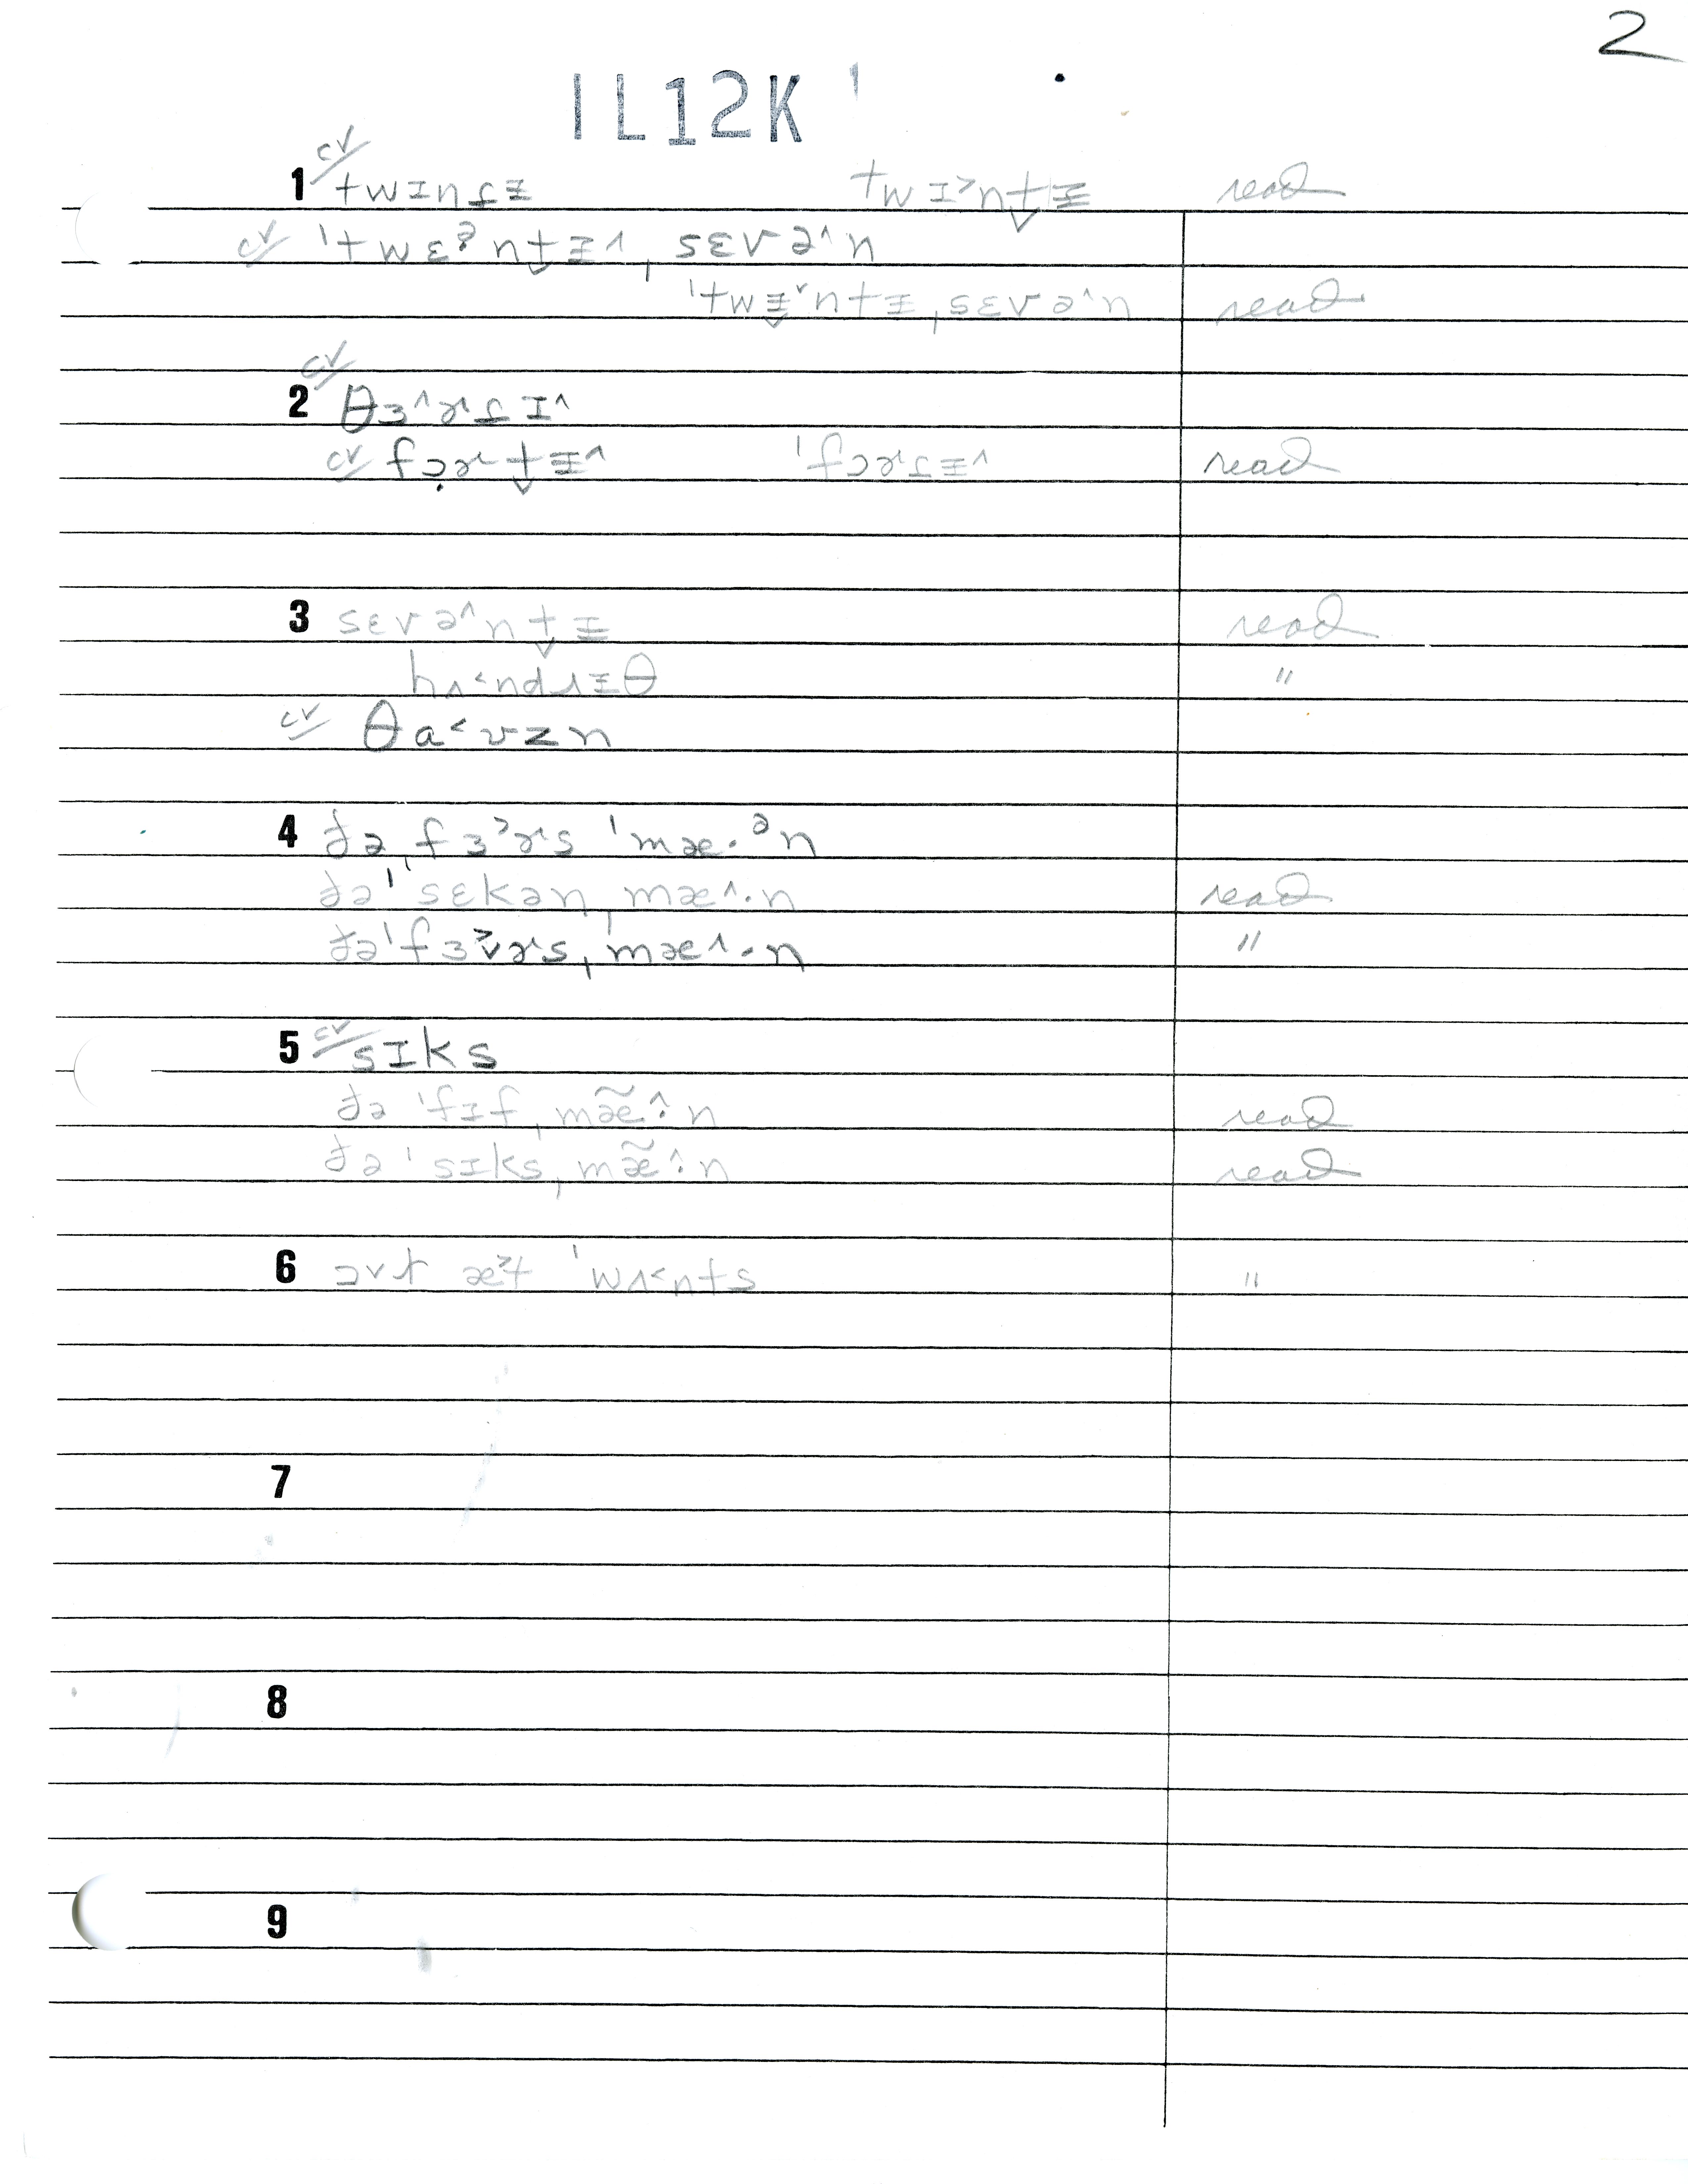 2
IL12K'
1 cv twɪnt̬ɨ twɪ˃nt̬ɨ read
cv ˈtwɛᵊ̣nt̬ɨ˄ˌsɛvə˄n
ˈtwɨ̬˃ntɨˌsɛvə˄n read
2 cv θɜ˄ɚt̬ɪ˄
cv fɔ̣ɚt̬ɨ˄ ˈfɔɚt̬ɨ˄ read
3 sɛvə˄nt̬ɨ read
hʌ˂ndɹɨθ "
cv θa˂ʊzn
4 ðəˌfɜ˃ɚs ˈmæ·ᵊn
ðəˈsɛkənˌmæ˄·n read
ðəˈfɜ˃ɚsˌmæ˄·n "
5 cv sɪks
ðə ˈfɪfˌmæ̃˄·n read
ðə ˈsɪksˌmæ̃˄·n read
6 ˈwʌ˂nts "
7
8
9